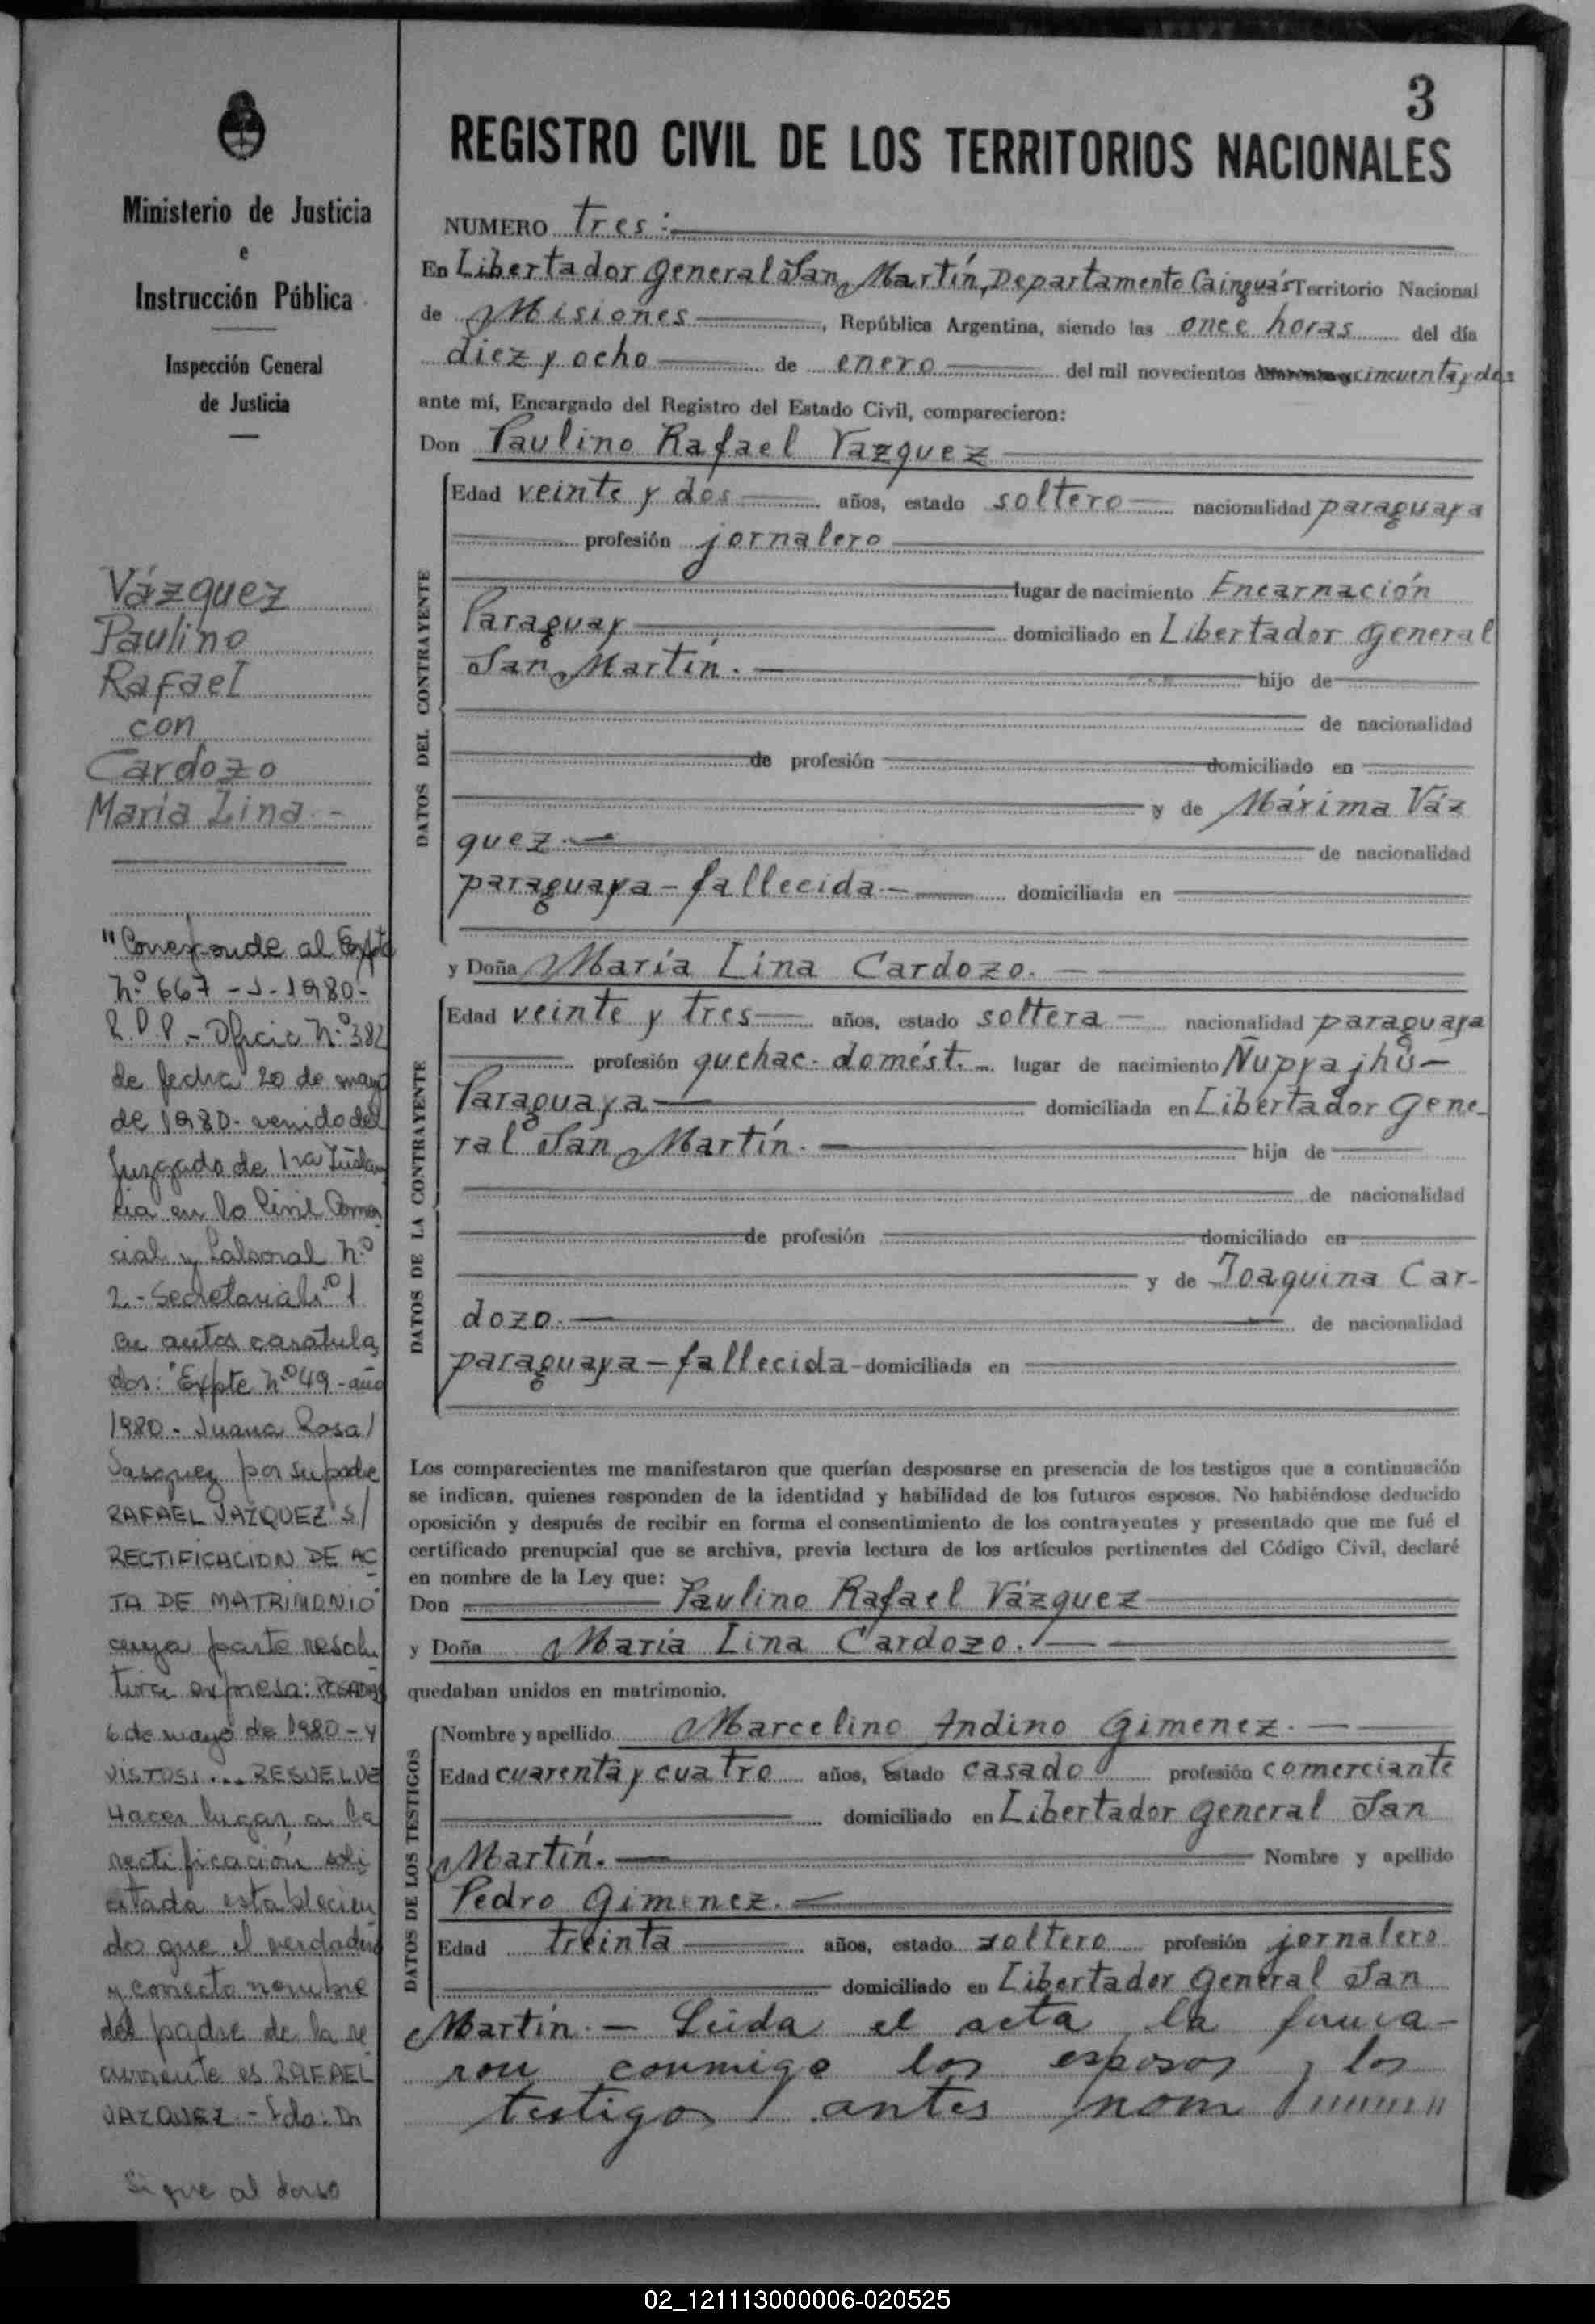 3
REGISTRO CIVIL DE LOS TERRITORIOS NACIONALES
Ministerio de Justicia
e
Instrucción Pública
Inspección General
de Justicia
Vázquez
Paulino
Rafael
con
Cardozo
María Lina.-
"Corresponde al Expte
Nº 667 - J - 1980-
R.P.P. - Oficio Nº 382
de fecha 20 de mayo
de 1980 - venido del
Juzgado de 1ra Instan
cia en lo Civil Comer
cial y Laboral Nº
2 - Secretaria Nº 1
en autos caratula
dos: "Expte Nº 49 - año
1980 - Juana Rosa
Vasquez por su padre
RAFAEL VAZQUEZ S/
RECTIFICACION DE AC
TA DE MATRIMONIO"
cuya parte resolu
tiva expresa: POSADAS
6 de mayo de 1980 - Y
VISTOS:... RESUELVE
Hacer lugar a la
rectificación soli
citada establecien
do que el verdadero
y correcto nombre
del padre de la re
currente es RAFAEL
VAZQUEZ - Fdo: Dr
Sigue al dorso
NUMERO tres:
En Libertador General San Martín, Departamento Cainguás Territorio Nacional
de Misiones, República Argentina, siendo las once horas del día
diez y ocho de enero del mil novecientos cincuenta y dos
ante mí, Encargado del Registro del Estado Civil, comparecieron:
Don Paulino Rafael Vazquez
DATOS DEL CONTRAYENTE
Edad veinte y dos años, estado soltero nacionalidad paraguaya
profesión jornalero
lugar de nacimiento Encarnación
Paraguay domiciliado en Libertador General
San Martín. hijo de
de nacionalidad
de profesión domiciliado en
y de Máxima Váz
quez.- de nacionalidad
paraguaya - fallecida.- domiciliada en
y Doña María Lina Cardozo.
DATOS DE LA CONTRAYENTE
Edad veinte y tres años, estado soltera nacionalidad paraguaya
profesión quehac. domést. lugar de nacimiento Ñupyajhú
Paraguaya domiciliada en Libertador Gene-
ral San Martín. hija de
de nacionalidad
de profesión domiciliado en
y de Joaquina Car-
dozo. de nacionalidad
paraguaya - fallecida - domiciliada en
Los comparecientes me manifestaron que querían desposarse en presencia de los testigos que a continuación
se indican, quienes responden de la identidad y habilidad de los futuros esposos. No habiéndose deducido
oposición y después de recibir en forma el consentimiento de los contrayentes y presentado que me fué el
certificado prenupcial que se archiva, previa lectura de los artículos pertinentes del Código Civil, declaré
en nombre de la Ley que:
Don Paulino Rafael Vázquez
y Doña María Lina Cardozo.
quedaban unidos en matrimonio.
DATOS DE LOS TESTIGOS
Nombre y apellido Marcelino Andino Gimenez.
Edad cuarenta y cuatro años, estado casado profesión comerciante
domiciliado en Libertador General San
Martín. Nombre y apellido
Pedro Gimenez.
Edad treinta años, estado soltero profesión jornalero
domiciliado en Libertador General San
Martín. - Leida el acta la firma-
ron conmigo los esposos y los
testigos antes nom
02_121113000006-020525